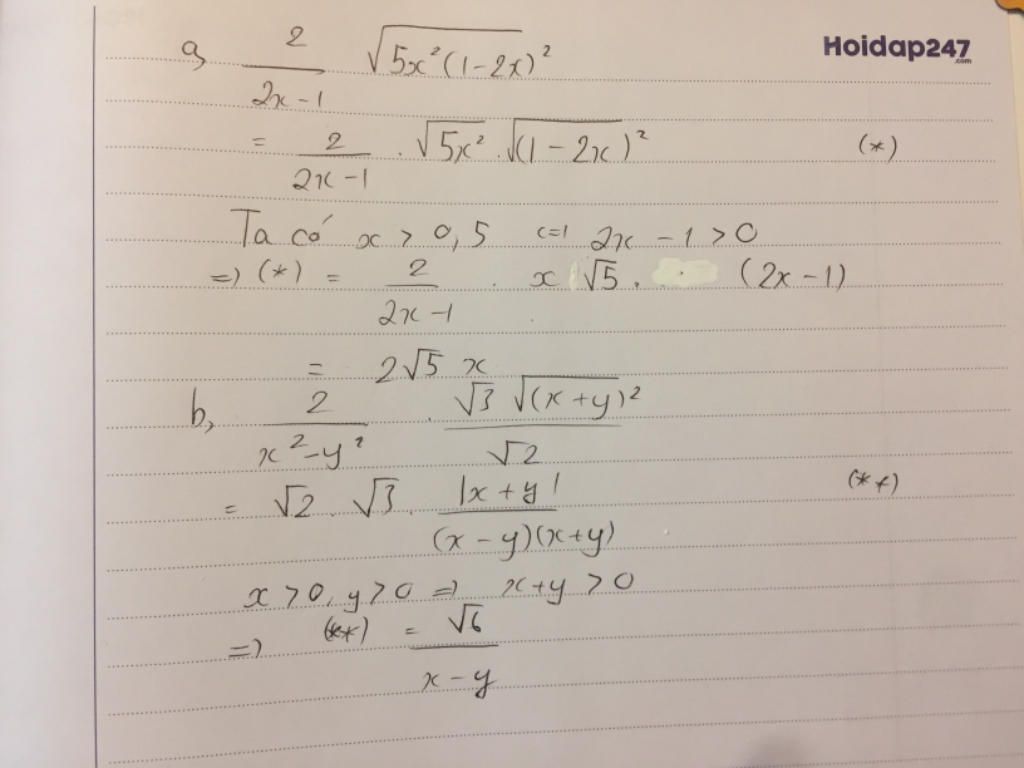 Hoidap247
.com
a, 2/(2x-1) √(5x²(1-2x)²)
= 2/(2x-1) . √(5x²) . √((1-2x)²) (*)
Ta có x > 0,5 <=> 2x - 1 > 0
=> (*) = 2/(2x-1) . x √5 . (2x-1)
= 2√5 x
b, 2/(x²-y²) . √3 √((x+y)²)/√2
= √2 . √3 . |x+y|/((x-y)(x+y)) (**)
x > 0, y > 0 => x+y > 0
=> (**) = √6/(x-y)